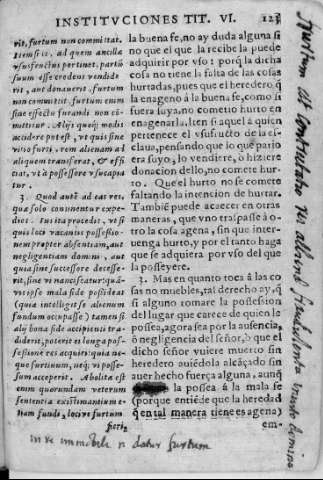 INSTITVCIONES TIT. VI. 123
rit, furtum non committat.
Item si is, ad quem ancillæ
vsusfructus pertinet, partũ
suum esse credens vendide
rit, aut donauerit, furtum
non committit. furtum enim
sine affectu furandi non cõ
mittitur. Alijs quoq; modis
accidere potest, vt quis sine
vitio furti, rem alienam ad
aliquem transferat, & effi
ciat, vt à possessore vsucapia
tur.
3. Quod autẽ ad eas res,
quæ solo continentur expe-
dit. Ius ita procedit, vt si
quis loci vacantis possessio-
nem propter absentiam, aut
negligentiam domini, aut
quia sine successore decesse-
rit, sine vi nanciscatur: quã-
uis ipse mala fide possideat
(quia intelligit se alienum
fundum occupasse) tamen si
alij bona fide accipienti tra-
diderit, poterit ei longa pos-
sessione res acquiri: quia ne-
que furtiuum, neq; vi posses-
sum acceperit. Abolita est
enim quorundam veterum
sententia existimantium e-
tiam fundi, lociue furtum
fieri,
la buena fe, no ay duda alguna si
no que el que la recibe la puede
adquirir por vso: porq̃ la dicha
cosa no tiene la falta de las cosas
hurtadas, pues que el heredero q̃
la enageno á la buena fe, como si
fuera suya, no cometio hurto en
enagenarla. Iten si aquel á quien
pertenece el vsufructo de la es-
claua, pensando que lo que pario
era suyo, lo vendiere, ò hiziere
donacion dello, no comete hur-
to. Que el hurto no se comete
faltando la intencion de hurtar.
Tambiẽ puede acaecer en otras
maneras, que vno traspasse á o-
tro la cosa agena, sin que inter-
uenga hurto, y por el tanto haga
que se adquiera por vso del que
la posseyere.
3. Mas en quanto toca á las co
sas no muebles, tal derecho ay, q̃
si alguno tomare la possession
del lugar que carece de quien le
possea, agora sea por la ausencia,
ò negligencia del señor, ò que el
dicho señor vuiere muerto sin
heredero auiédola alcãçado sin
auer hecho fuerça alguna, aunq̃
la possea á la mala fe
(porque entiẽde que la heredad
q̃ en tal manera tiene es agena)
em-
in re immobili n datur furtum
furtum est contrectatio rei alienæ fraudulenta inuito domino